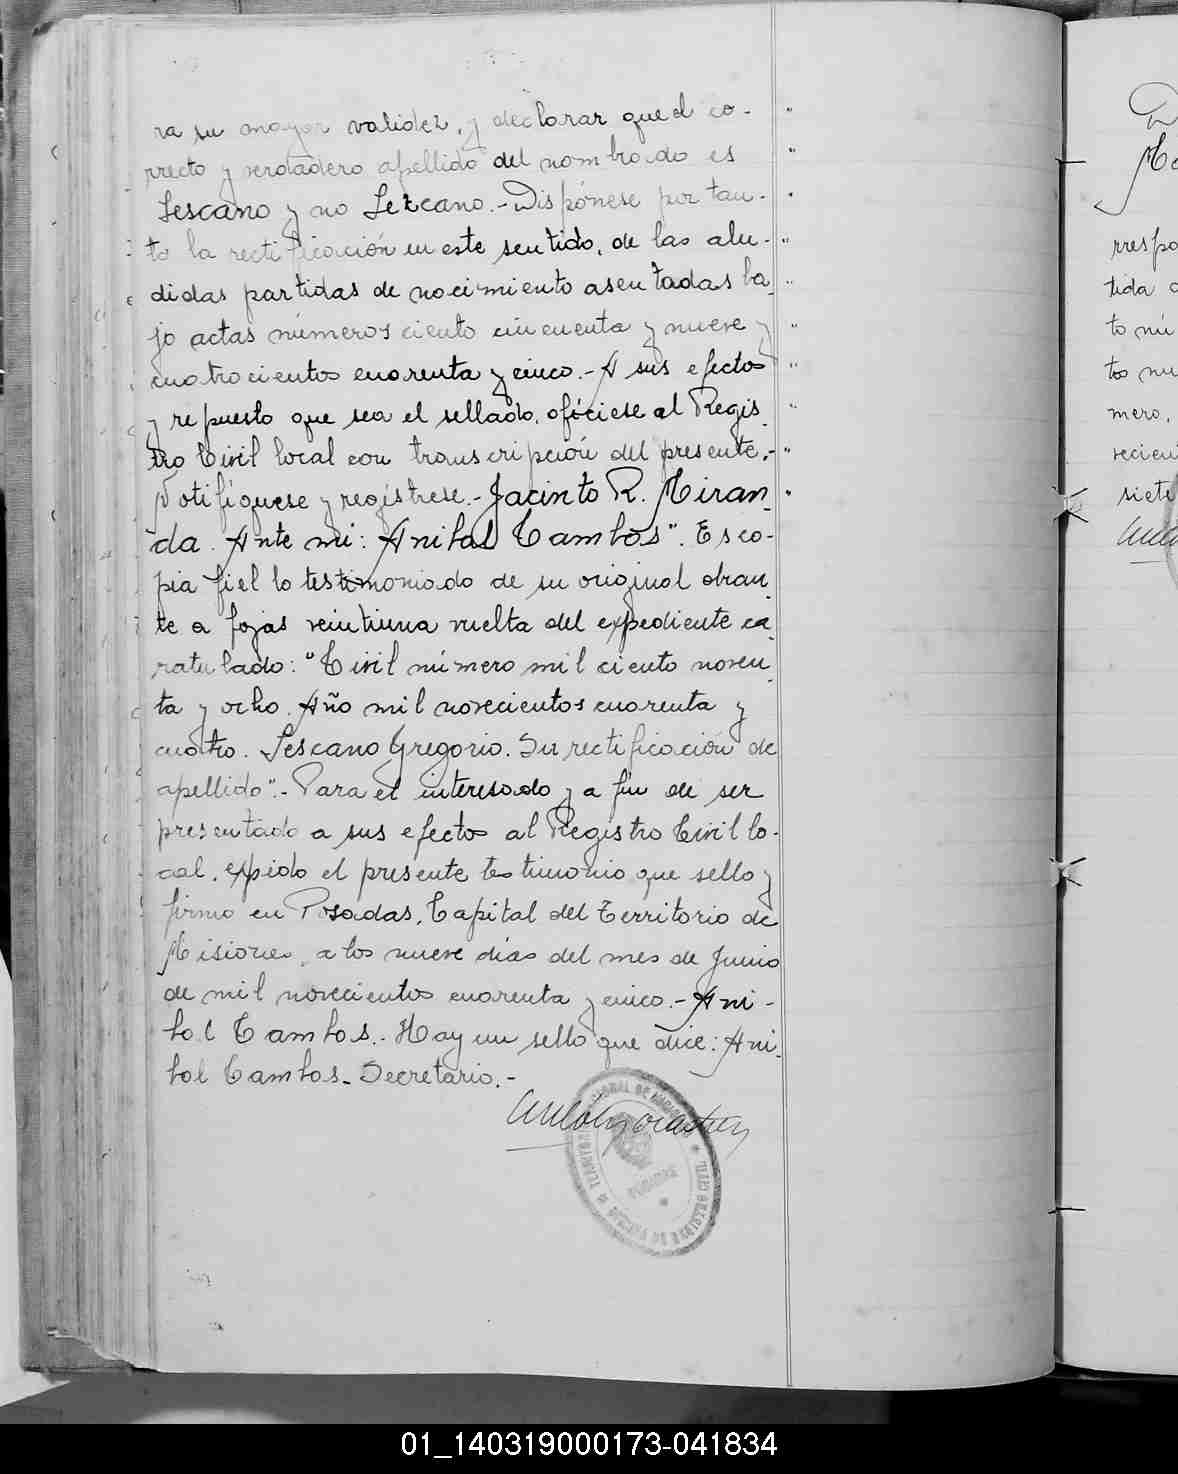 ra su mayor validez, y declarar que el co-
rrecto y verdadero apellido del nombrado es
Lescano y no Lezcano.- Dispónese por tan-
to la rectificación en este sentido, de las alu-
didas partidas de nacimiento asentadas ba
jo actas números ciento cincuenta y nueve y
cuatrocientos cuarenta y cinco.- A sus efectos
y repuesto que sea el sellado, ofíciese al Regis
tro Civil local con transcripción del presente.-
Notifíquese y regístrese.- Jacinto R. Miran
da. Ante mi: Anibal Cambos". Es co-
pia fiel lo testimoniado de su original obran
te a fojas veintiuna vuelta del expediente ca
ratulado: "Civil número mil ciento noven
ta y ocho. Año mil novecientos cuarenta y
cuatro. Lescano Gregorio. Su rectificación de
apellido".- Para el interesado y a fin de ser
presentado a sus efectos al Registro Civil lo-
cal, expido el presente testimonio que sello y
firmo en Posadas, Capital del Territorio de
Misiones, a los nueve días del mes de Junio
de mil novecientos cuarenta y cinco.- Ani-
bal Cambos.- Hay un sello que dice: Ani
bal Cambos- Secretario.-
POSADAS
rrespo
tida
to nú
mero,
siete
01_140319000173-041834